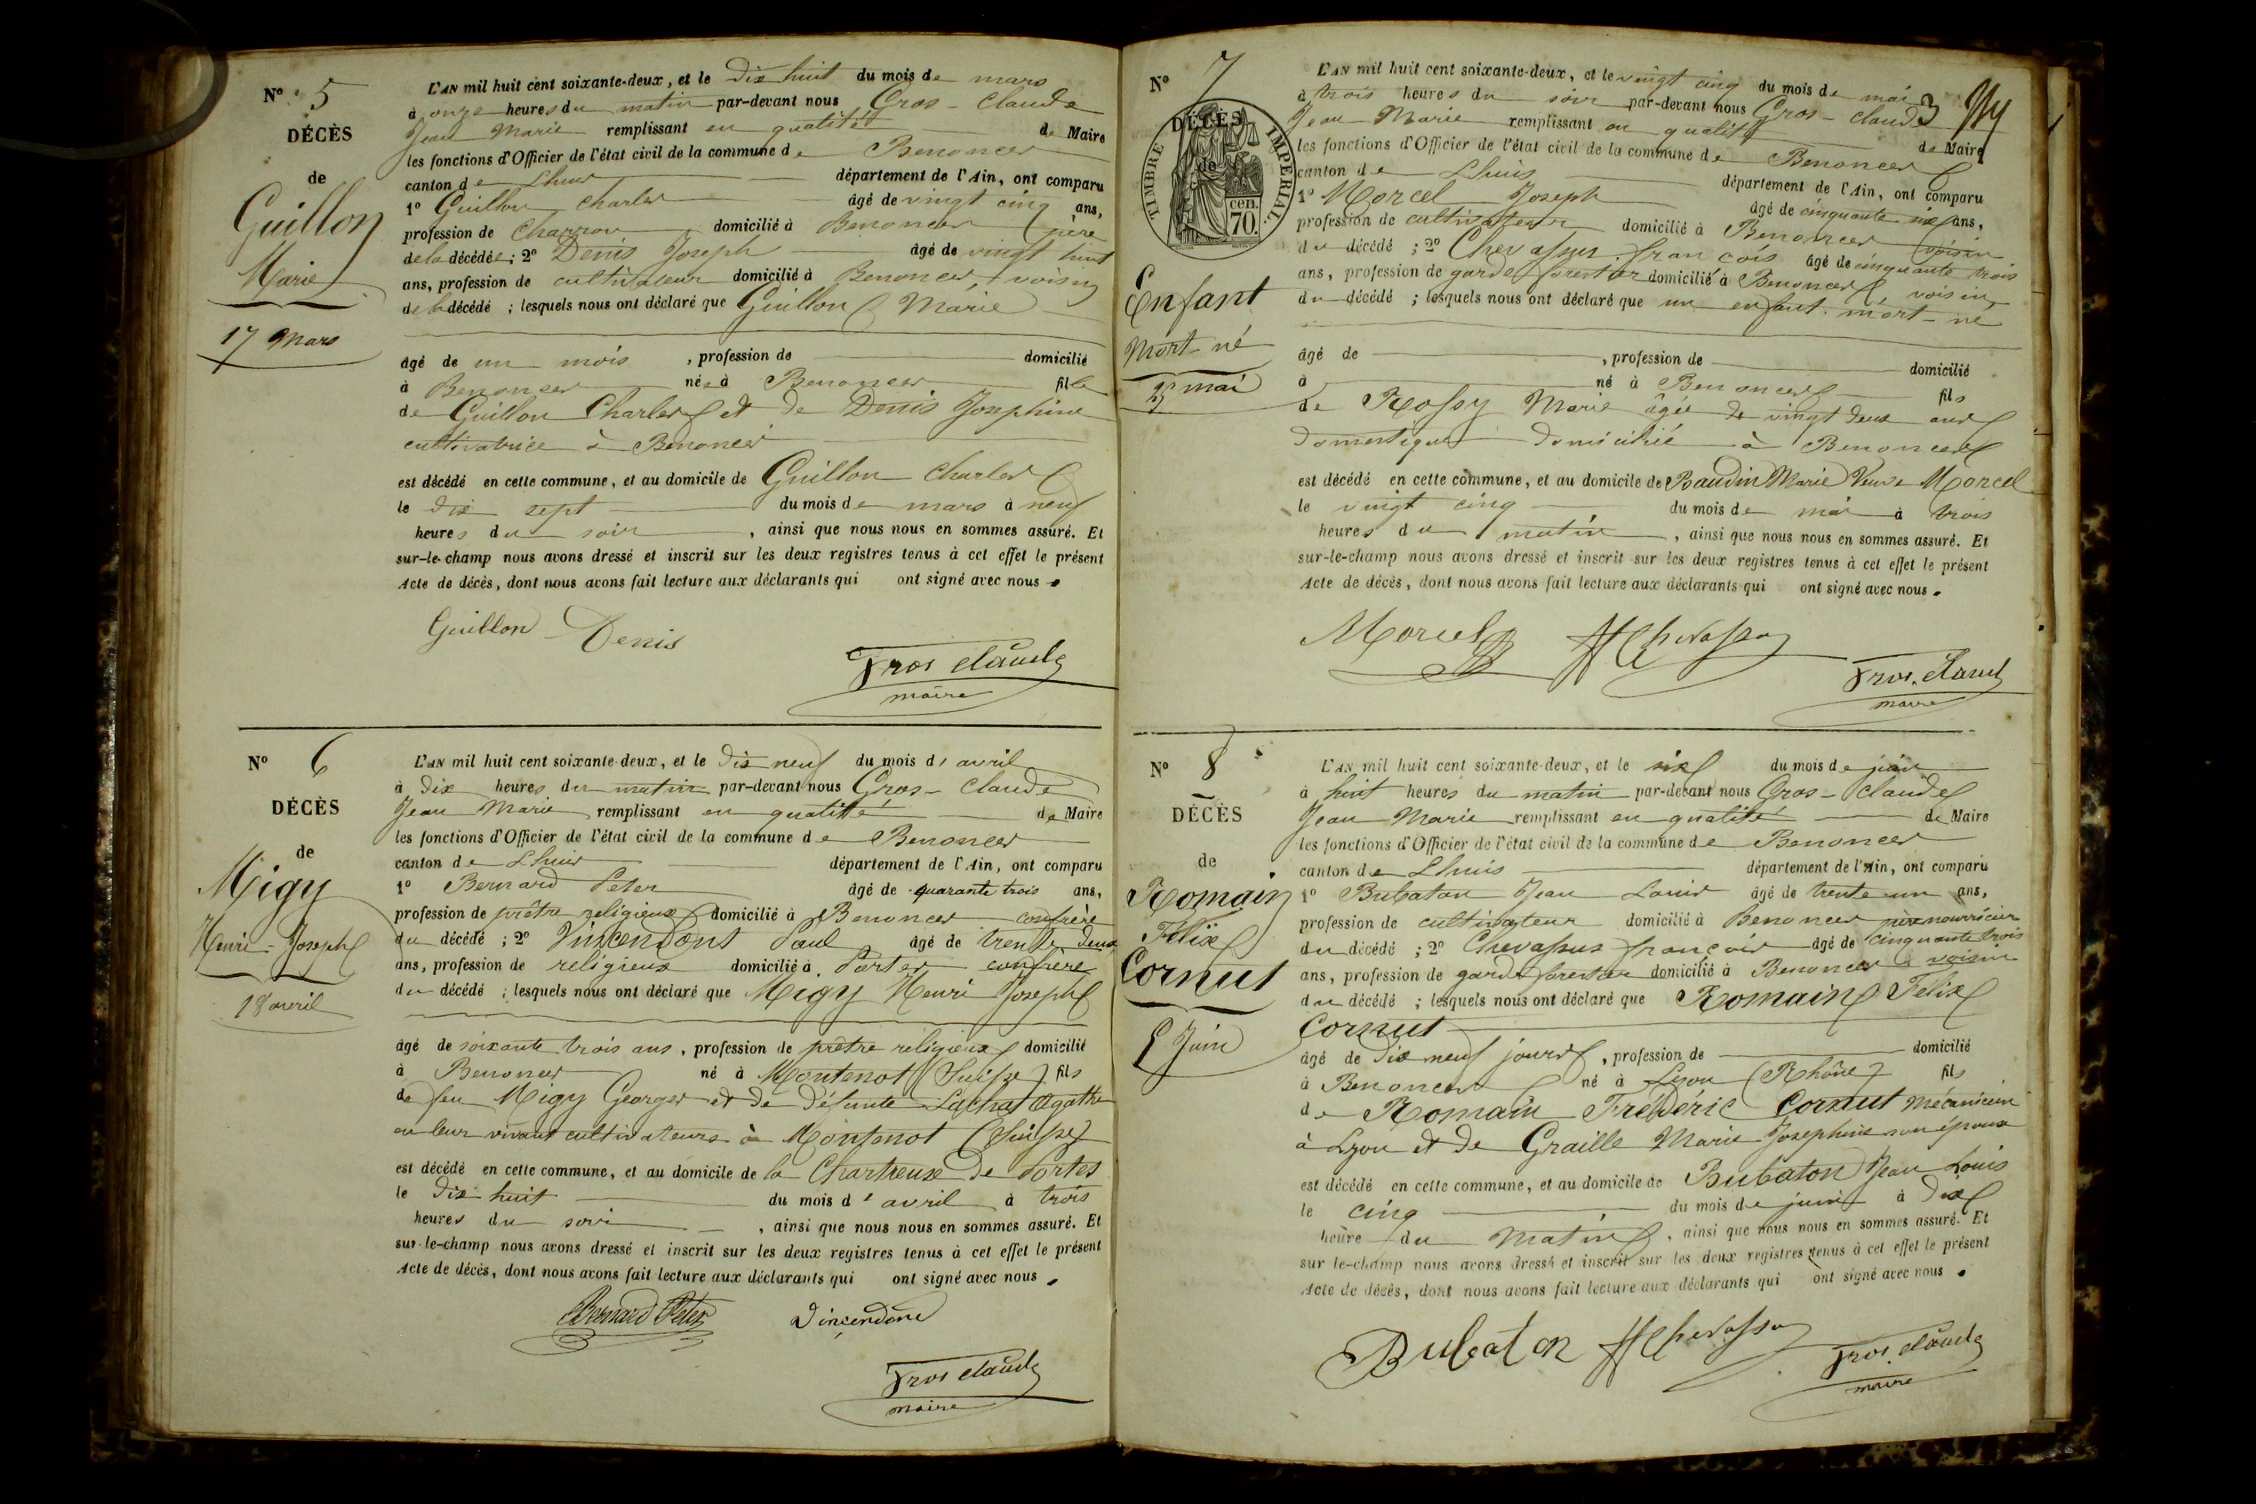 N° 5
DÉCÈS
de
Guillon
Marie
17 Mars
L'AN mil huit cent soixante-deux, et le dix huit du mois de mars
à onze heures du matin par-devant nous Gros-Claude
Jean Marie remplissant en qualité de Maire
les fonctions d'Officier de l'état civil de la commune de Benonces
canton de Lhuis département de l'Ain, ont comparu
1° Guillon Charles âgé de vingt cinq ans,
profession de Charron domicilié à Benonces père
de la décédée; 2° Denis Joseph âgé de vingt huit
ans, profession de cultivateur domicilié à Benonces, voisin
de la décédé ; lesquels nous ont déclaré que Guillon Marie
âgé de un mois , profession de domicilié
à Benonces née à Benonces fille
de Guillon Charles et de Denis Josephine
cultivatrice à Benonces
est décédé en cette commune, et au domicile de Guillon Charles
le dix sept du mois de mars à neuf
heures du soir , ainsi que nous nous en sommes assuré. Et
sur-le-champ nous avons dressé et inscrit sur les deux registres tenus à cet effet le présent
Acte de décès, dont nous avons fait lecture aux déclarants qui ont signé avec nous.
Guillon Denis
Gros Claude
maire
N° 6
DÉCÈS
de
Migy
Henri-Joseph
18 avril
L'AN mil huit cent soixante-deux, et le dix neuf du mois d'avril
à dix heures du matin par-devant nous Gros-Claude
Jean Marie remplissant en qualité de Maire
les fonctions d'Officier de l'état civil de la commune de Benonces
canton de Lhuis département de l'Ain, ont comparu
1° Bernard Peter âgé de quarante trois ans,
profession de prêtre religieux domicilié à Benonces confrère
du décédé ; 2° Vincendont Paul âgé de trente deux
ans, profession de religieux domicilié à Portes confrère
du décédé ; lesquels nous ont déclaré que Migy Henri Joseph
âgé de soixante trois ans, profession de prêtre religieux domicilié
à Benonces né à Montenot (Suisse) fils
de feu Migy Georges et de défunte Lachat Agathe
en leur vivant cultivateurs à Montenot (Suisse)
est décédé en cette commune, et au domicile de la Chartreuse de Portes
le dix huit du mois d'avril à trois
heures du soir , ainsi que nous nous en sommes assuré. Et
sur-le-champ nous avons dressé et inscrit sur les deux registres tenus à cet effet le présent
Acte de décès, dont nous avons fait lecture aux déclarants qui ont signé avec nous.
Bernard Peter Vincendont
Gros Claude
maire
N° 7
3
DÉCÈS
de
TIMBRE IMPÉRIAL
70 cen.
Enfant
Mort-né
25 mai
L'AN mil huit cent soixante-deux, et le vingt cinq du mois de mai
à trois heures du soir par-devant nous Gros-Claude
Jean Marie remplissant en qualité de Maire
les fonctions d'Officier de l'état civil de la commune de Benonces
canton de Lhuis département de l'Ain, ont comparu
1° Morcel Joseph âgé de cinquante six ans,
profession de cultivateur domicilié à Benonces voisin
du décédé ; 2° Chevassus françois âgé de cinquante trois
ans, profession de garde forestier domicilié à Benonces voisin
du décédé ; lesquels nous ont déclaré que un enfant mort-né
âgé de , profession de domicilié
à né à Benonces fils
de Rossy Marie âgée de vingt deux ans
domestique domiciliée à Benonces
est décédé en cette commune, et au domicile de Baudin Marie Veuve Morcel
le vingt cinq du mois de mai à trois
heures du matin , ainsi que nous nous en sommes assuré. Et
sur-le-champ nous avons dressé et inscrit sur les deux registres tenus à cet effet le présent
Acte de décès, dont nous avons fait lecture aux déclarants qui ont signé avec nous.
Morcel Chevassus
Gros Claude
maire
N° 8
DÉCÈS
de
Romain
Félix
Cornut
5 Juin
L'AN mil huit cent soixante-deux, et le six du mois de juin
à huit heures du matin par-devant nous Gros-Claude
Jean Marie remplissant en qualité de Maire
les fonctions d'Officier de l'état civil de la commune de Benonces
canton de Lhuis département de l'Ain, ont comparu
1° Bubaton Jean Louis âgé de trente un ans,
profession de cultivateur domicilié à Benonces père nourricier
du décédé ; 2° Chevassus françois âgé de cinquante trois
ans, profession de garde forestier domicilié à Benonces voisin
du décédé ; lesquels nous ont déclaré que Romain Félix
Cornut
âgé de dix neuf jours , profession de domicilié
à Benonces né à Lyon (Rhône) fils
de Romain Frédéric Cornut mécanicien
à Lyon et de Graille Marie Josephine son épouse
est décédé en cette commune, et au domicile de Bubaton Jean Louis
le cinq du mois de juin à dix
heure du matin , ainsi que nous nous en sommes assuré. Et
sur-le-champ nous avons dressé et inscrit sur les deux registres tenus à cet effet le présent
Acte de décès, dont nous avons fait lecture aux déclarants qui ont signé avec nous.
Bubaton Chevassus
Gros Claude
maire